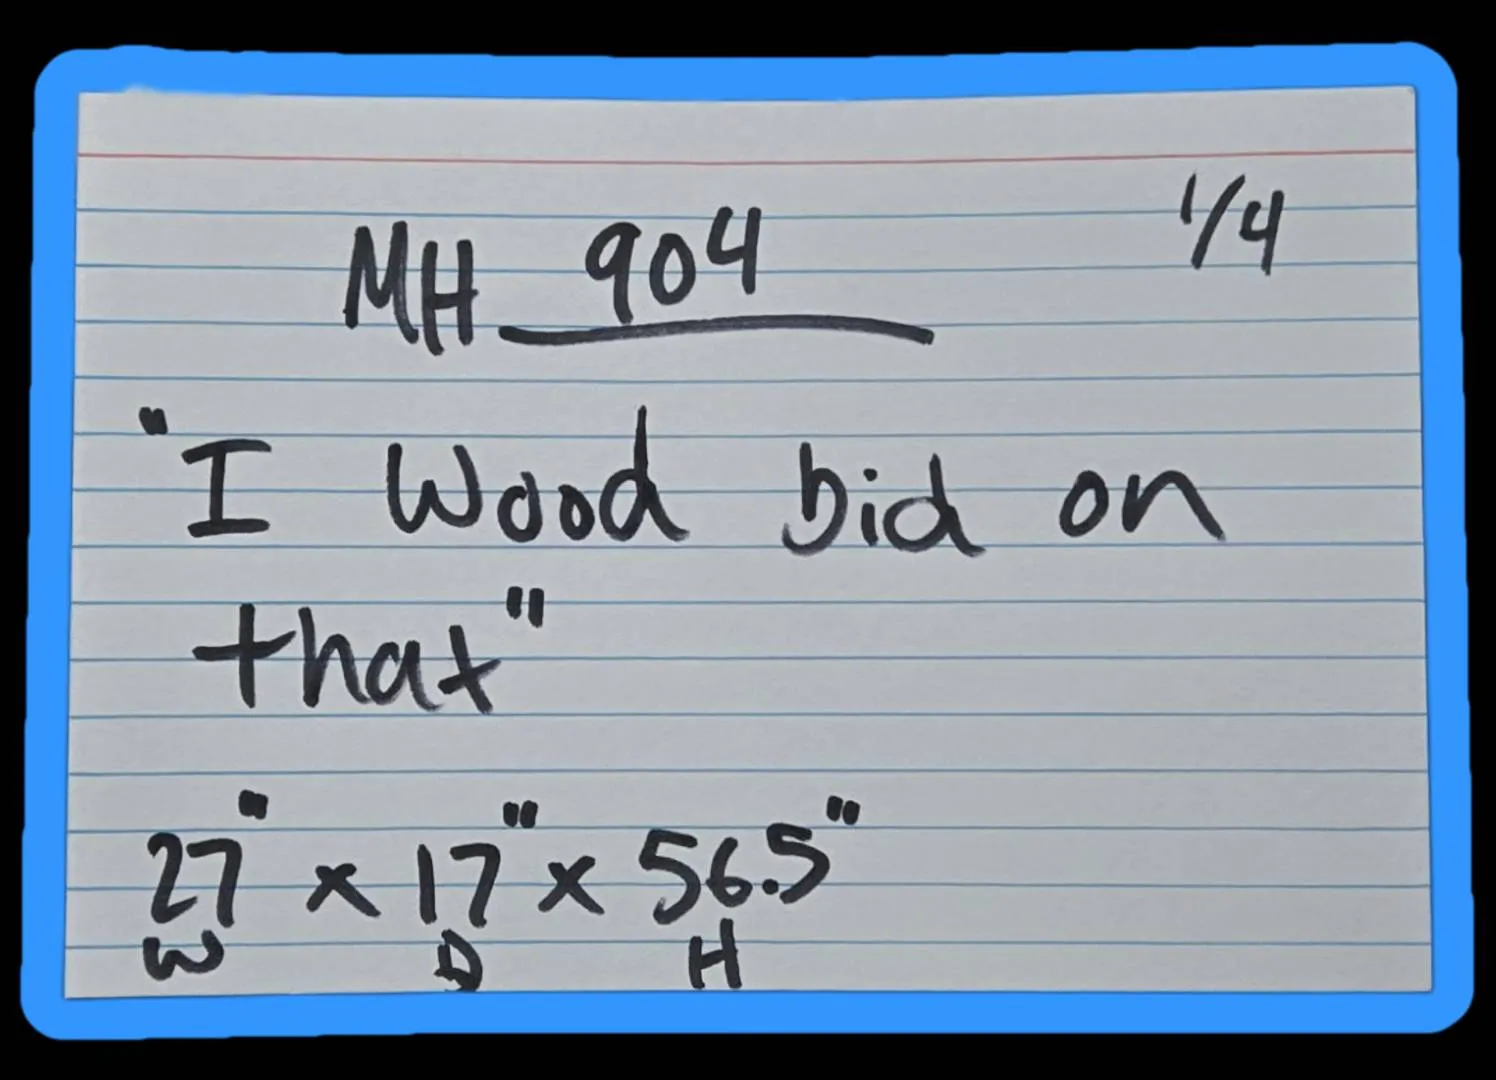 MH 904 1/4
"I Wood bid on
that"
27" x 17" x 56.5"
W D H